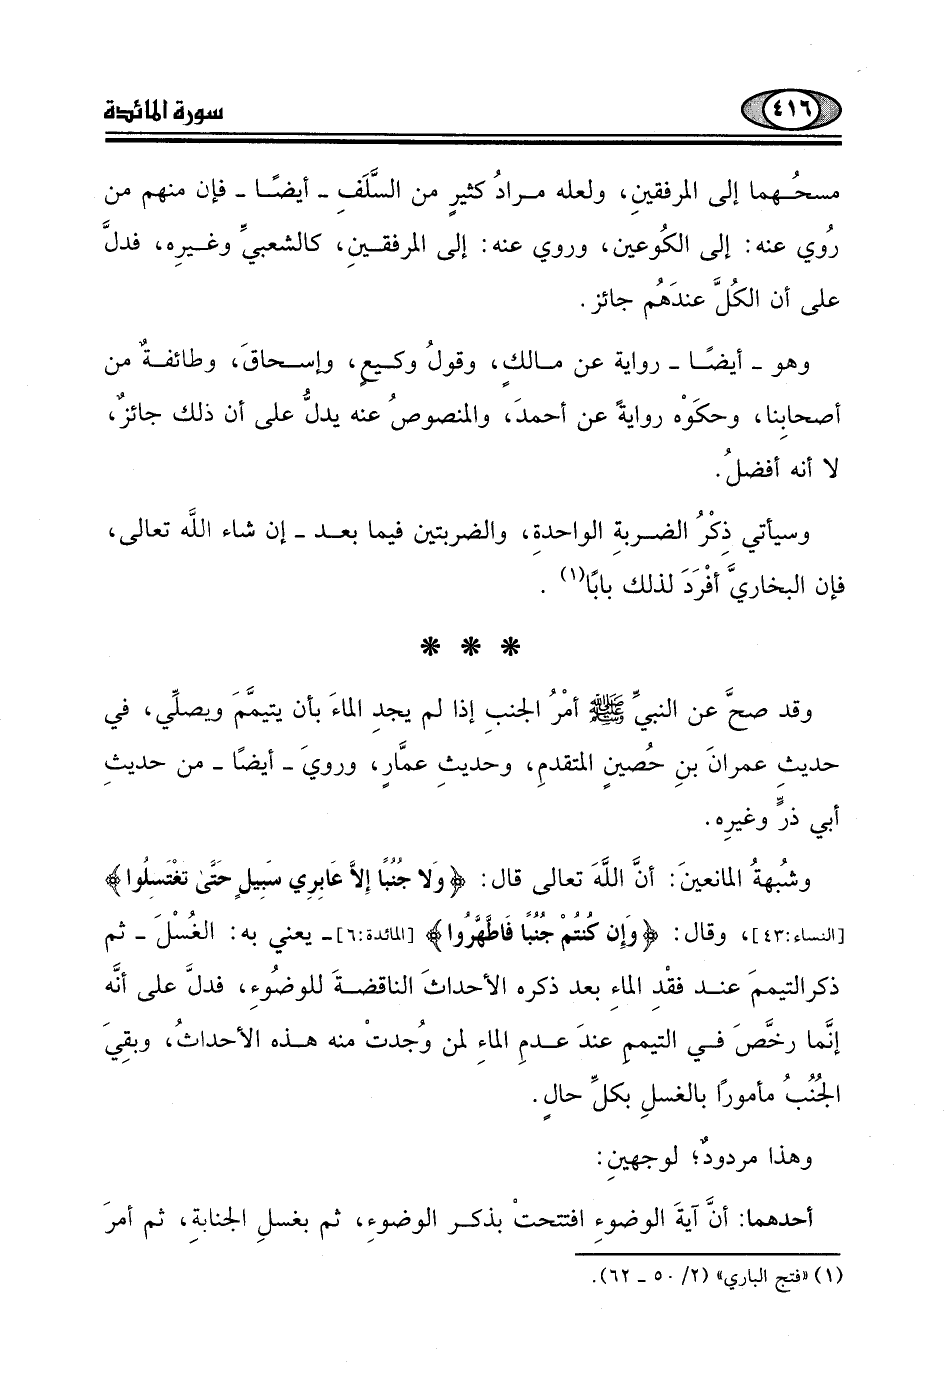 ٤١٦
سورة المائدة
مسحُهما إلى المرفقينِ، ولعله مرادُ كثيرٍ من السَّلَفِ ـ أيضًا ـ فإن منهم من
رُوي عنه: إلى الكُوعين، وروي عنه: إلى المرفقينِ، كالشعبيِّ وغيرِه، فدلَّ
على أن الكُلَّ عندَهُم جائز.
وهو ـ أيضًا ـ رواية عن مالكٍ، وقولُ وكيعٍ، وإسحاقَ، وطائفةٌ من
أصحابِنا، وحكَوْه روايةً عن أحمدَ، والمنصوصُ عنه يدلُّ على أن ذلك جائزٌ،
لا أنه أفضلُ.
وسيأتي ذِكْرُ الضربةِ الواحدةِ، والضربتين فيما بعد ـ إن شاء اللَّه تعالى،
فإن البخاريَّ أفْرَدَ لذلك بابًا(١).
* * *
وقد صحَّ عن النبيِّ ﷺ أمْرُ الجنبِ إذا لم يجدِ الماءَ بأن يتيمَّمَ ويصلِّي، في
حديثِ عمرانَ بنِ حُصينٍ المتقدمِ، وحديثِ عمَّارٍ، ورويَ ـ أيضًا ـ من حديثِ
أبي ذرٍّ وغيرِه.
وشُبهةُ المانعينَ: أنَّ اللَّهَ تعالى قال: ﴿وَلا جُنُبًا إِلاَّ عَابِرِي سَبِيلٍ حَتَّىٰ تَغْتَسِلُوا﴾
[النساء:٤٣]، وقال: ﴿وَإِن كُنتُمْ جُنُبًا فَاطَّهَّرُوا﴾ [المائدة:٦]ـ يعني به: الغُسْلَ ـ ثم
ذكرالتيممَ عند فقْدِ الماءِ بعد ذكره الأحداثَ الناقضةَ للوضُوءِ، فدلَّ على أنَّه
إنَّما رخَّصَ في التيممِ عندَ عدمِ الماءِ لمن وُجدتْ منه هذه الأحداثُ، وبقِيَ
الجُنُبُ مأمورًا بالغسلِ بكلِّ حالٍ.
وهذا مردودٌ؛ لوجهينِ:
أحدهما: أنَّ آيةَ الوضوءِ افتتحتْ بذكرِ الوضوءِ، ثم بغسلِ الجنابةِ، ثم أمرَ
(١) «فتح الباري» (٢/ ٥٠ ـ ٦٢).